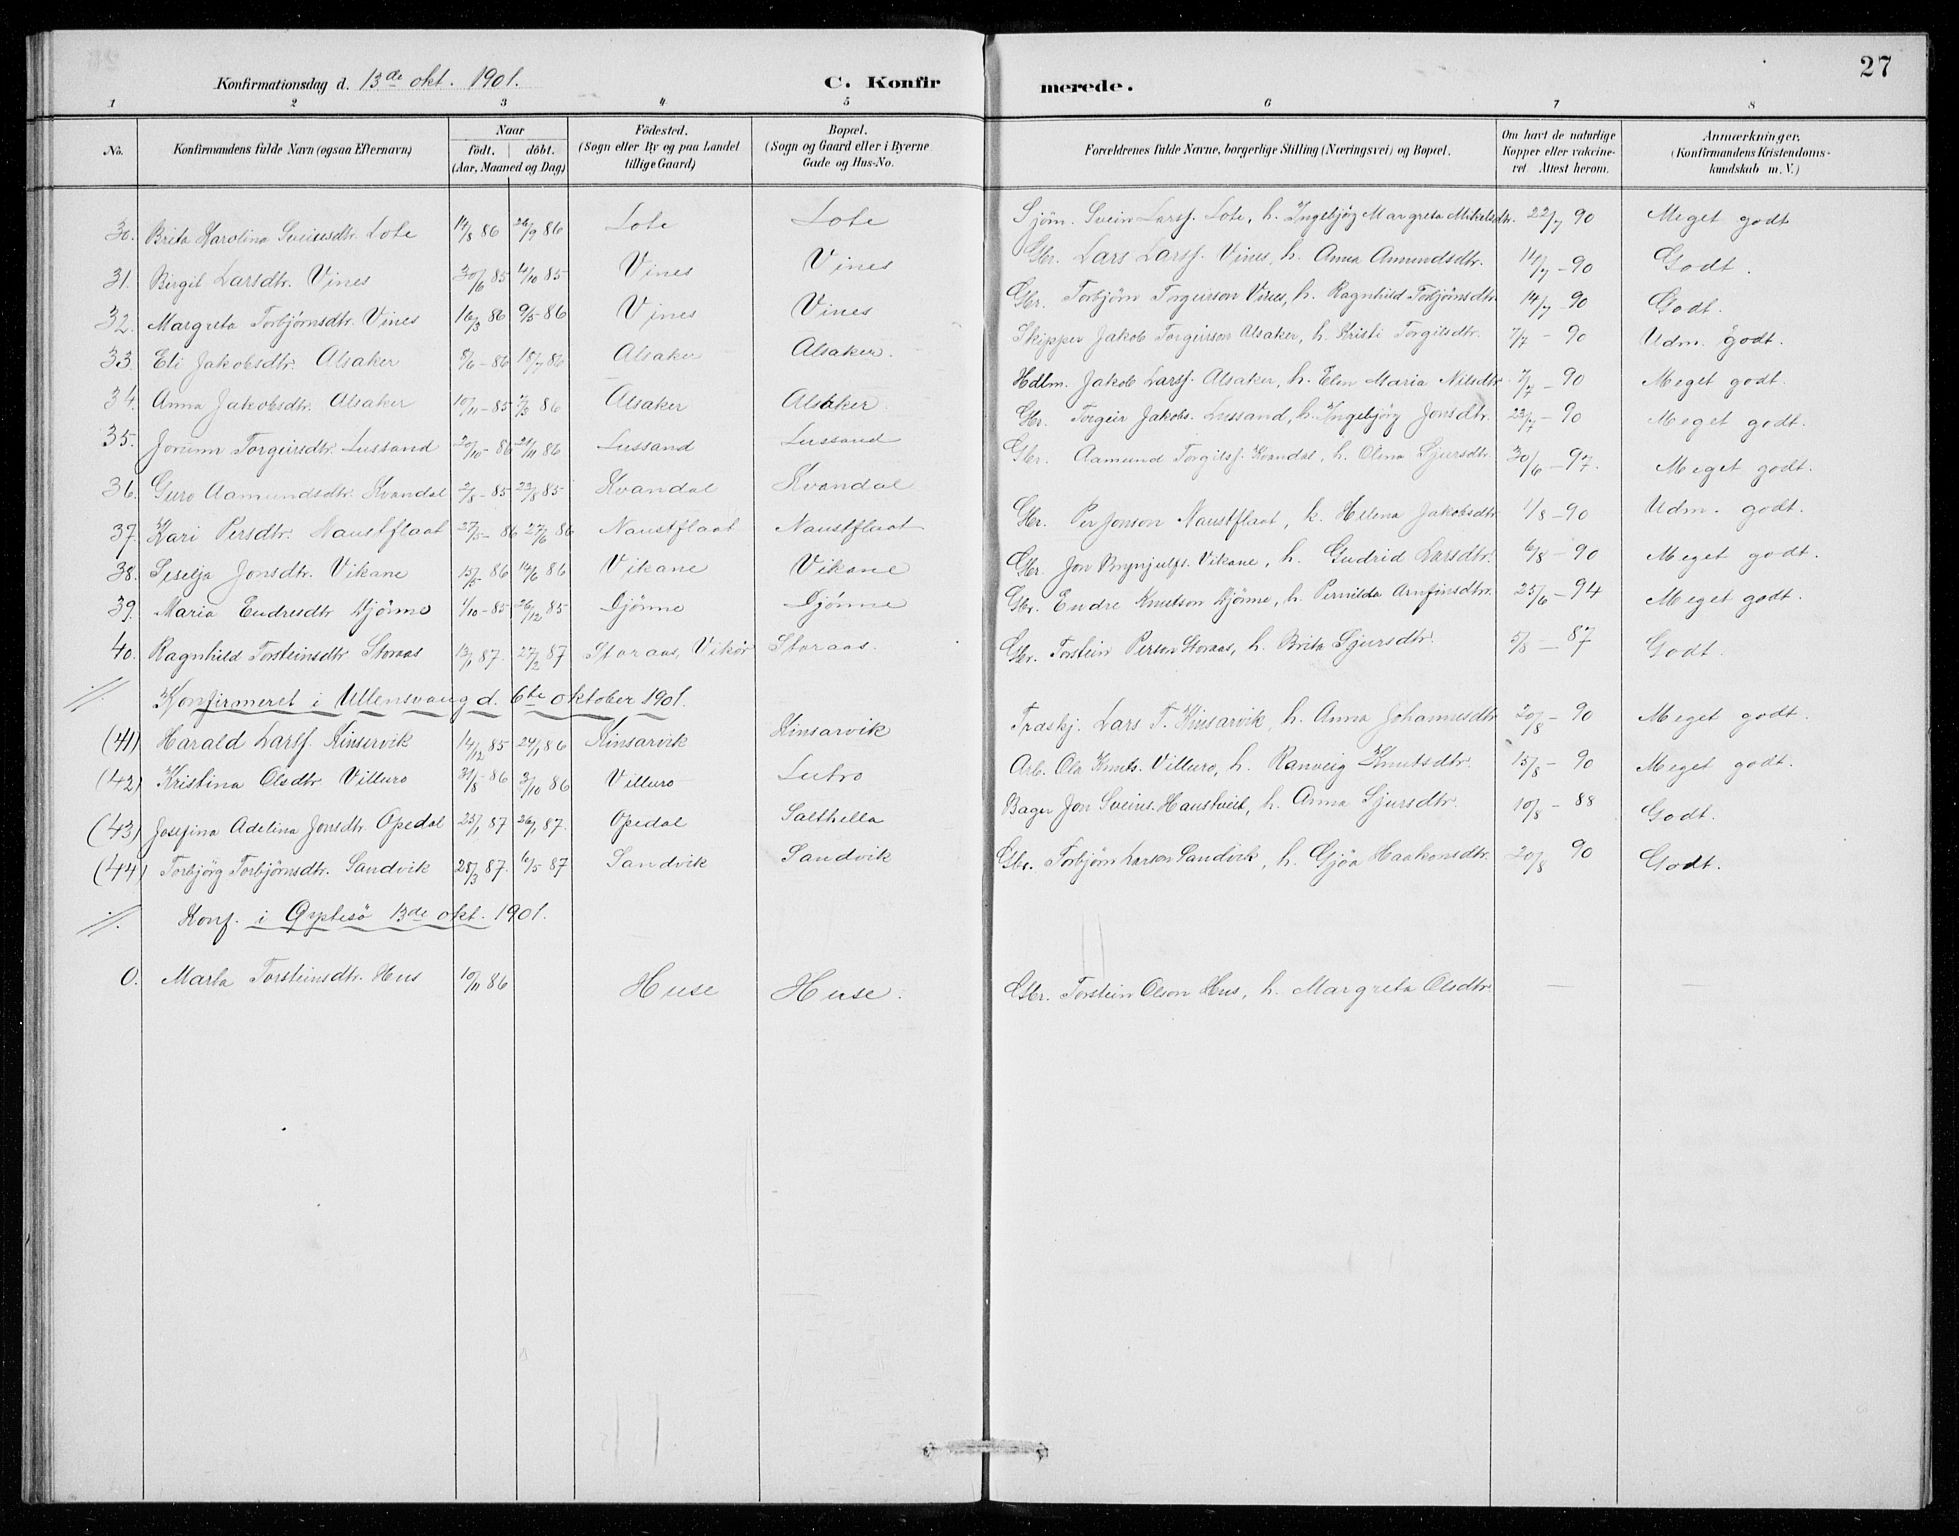 27
Konfirmationsdag d. 13de okt. 1901. C. Konfirmerede.
1 2 3 4 5 6 7 8
No. Konfirmandens fulde Navn (ogsaa Efternavn) Naar födt. döbt. (Aar, Maaned og Dag) Födested. (Sogn eller By og paa Landet tillige Gaard) Bopæl. (Sogn og Gaard eller i Byerne Gade og Hus-No. Forældrenes fulde Navne, borgerlige Stilling (Næringsvei) og Bopæl. Om havt de naturlige Kopper eller vakcineret Attest herom. Anmærkninger. (Konfirmandens Kristendomskundskab m. V.)
30. Brita Karolina Sveinsdtr. Lote 14/8 86 26/9 86 Lote Lote Sjöm. Svein Larsf. Lote, h. Ingebjøg Margreta Mikelsdtr. 22/7 90 Meget godt
31. Birgit Larsdtr. Vines 30/6 85 4/10 85 Vines Vines Gbr. Lars Larsf. Vines, h. Anna Amundsdtr. 14/7 - 90 Godt.
32. Margreta Torbjørnsdtr. Vines 16/3 86 9/5 - 86 Vines Vines Gbr. Torbjörn Torgeirson Vines, h. Ragnhild Torbjönsdtr 14/7 - 90 Godt.
33. Eli Jakobsdtr. Alsaker 8/6 - 86 18/7 86 Alsaker Alsaker. Skipper Jakob Torgeirson Alsaker, h. Kristi Torgilsdtr. 7/7 - 90 Udm. godt.
34. Anna Jakobsdtr. Alsaker 10/11 - 85 86 Alsaker Alsaker. Hdlm. Jakob Larsf. Alsaker, h. Elen Maria Nilsdtr. 7/7 - 90 Meget godt.
35. Jorunn Torgeirsdtr. Lussand 20/10 - 86 21/11 86 Lussand Lussand Gbr. Torgeir Jakobs. Lussand, h. Ingebjörg Jonsdtr. 23/7 - 90 Meget godt.
36. Guro Aamundsdtr. Kvandal 2/8 - 85 23/8 85 Kvandal Kvandal Gbr. Aamund Torgilsf. Kvandal, h. Olina Sjursdtr. 30/6 - 97. Meget godt.
37. Kari Persdtr. Naustflaat 27/5 - 86 27/6 86 Naustflaat Naustflaat Gbr. Per Jonson Naustflaat, h. Helena Jakobsdtr. 1/8 - 90 Udm. godt.
38. Siselja Jonsdtr. Vikane 15/5 86 14/6 86 Vikane Vikane Gbr. Jon Brynjulfs. Vikane, h. Gudrid Larsdtr. 6/8 - 90 Meget godt.
39. Maria Endresdtr Djönne 1/10 - 85 26/12 85 Djönne Djönne Gbr. Endre Knutson Djönne, h. Pernilda Arnfinsdtr. 25/6 - 94 Meget godt.
40. Ragnhild Torsteinsdtr Storaas 13/1 87. 27/2 87 Storaas, Vikör Storaas. Gbr. Torstein Person Storaas, h. Brita Sjursdtr. 5/8 - 87 Godt.
Konfirmeret i Ullensvang d. 6te oktober 1901.
(41) Harald Larsf. Kinservik 14/12 85 24/1 86 Kinsarvik Kinsarvik Lars T. Kinsarvik, h. Anna Johannesdtr 20/8 - 90 Meget godt.
(42) Kristina Olsdtr Villuro 31/8 - 86 3/10 86 Villuro Lutro Arb. Ola Knuts. Villuro, h. Ranveig Knutsdtr. 15/8 - 90 Meget godt.
(43) Josefina Adelina Jonsdtr. Opedal 23/1 87 26/1 87. Opedal Salthella Bager Jon Sveins. Haustveit, h. Anna Sjursdtr. 10/8 - 88 Godt.
(44) Torbjörg Torbjörnsdtr. Sandvik 28/3 87. 6/5 - 87 Sandvik Sandvik Gbr. Torbjörn Larson Sandvik, h. Gjöa Haakonsdtr. 20/8 90 Godt.
Konf. i 13de okt. 1901.
0. Marta Torsteinsdtr. Hus 10/11 86 Huse Huse. Gbr. Torstein Olson Hus, h. Margreta Olsdtr. — —